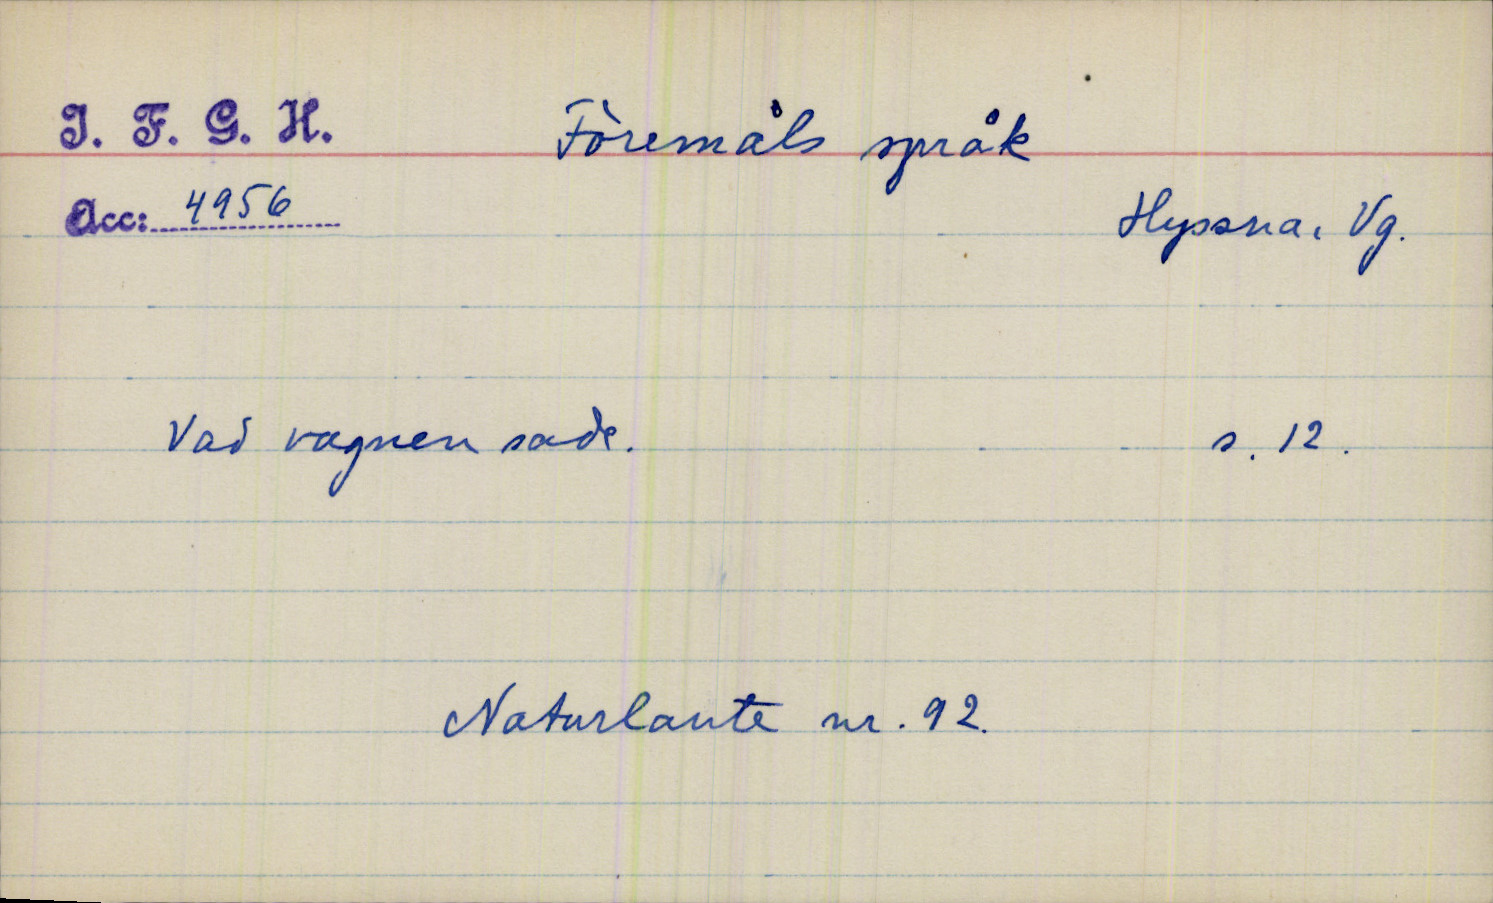 I. F. G. H.
Föremåls språk
Acc: 4956
Hyssna, Vg.
Vad vagnen sade. s. 12.
Naturlaute nr. 92.